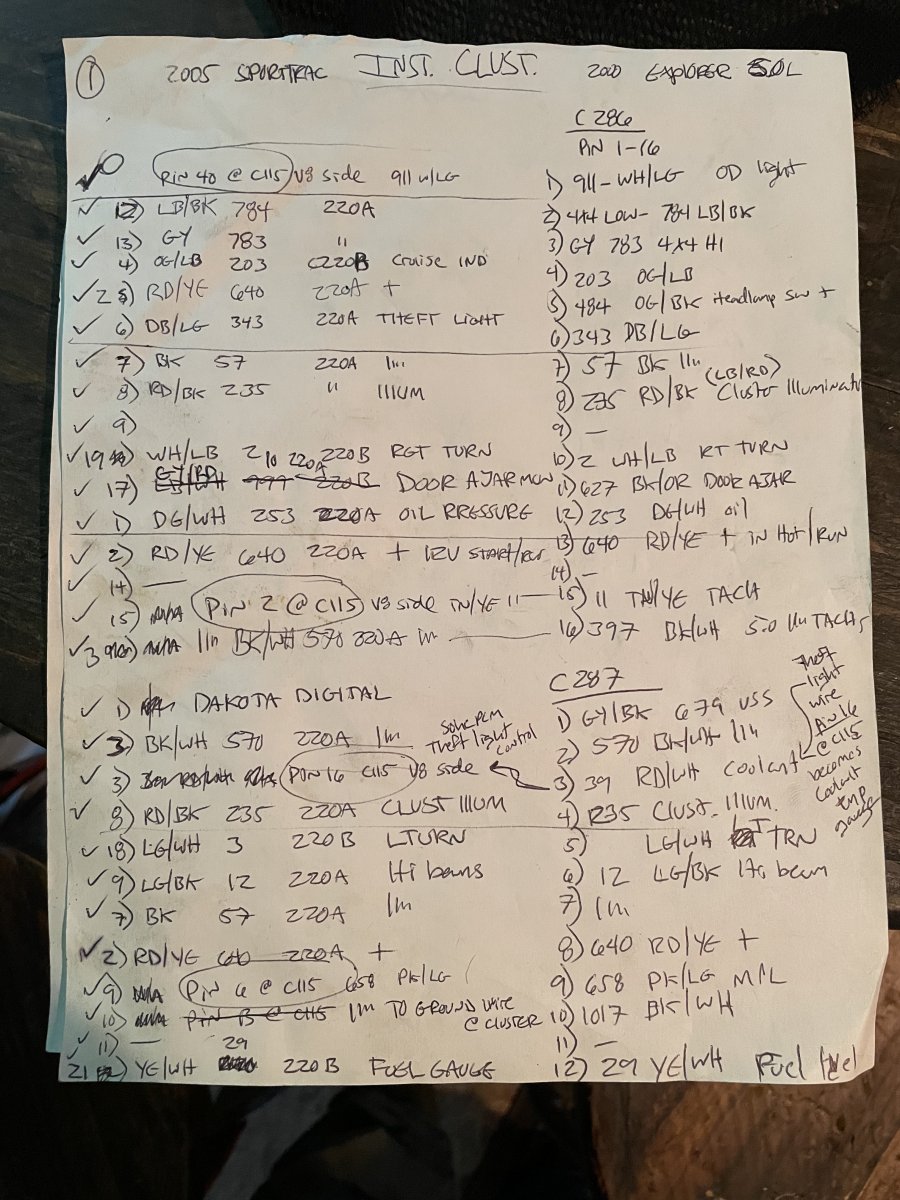 1 2005 SPORTTRAC INST. CLUST. 2000 EXPLORER 5.0L
C286
PIN 1-16
PIN 40 @ C115 V8 side 911 W/LG 1) 911-WH/LG OD light
12) LB/BK 784 220A 2) 4x4 LOW- 784 LB/BK
13) GY 783 " 3) GY 783 4x4 HI
4) OG/LB 203 C220B Cruise IND 4) 203 OG/LB
2 RD/YE 640 220A + 5) 484 OG/BK Headlamp sw +
6) DB/LG 343 220A THEFT LIGHT 6) 343 DB/LG
7) BK 57 220A 7) 57 BK
8) RD/BK 235 " IllUM 8) 235 RD/BK (LB/RD) Cluster Illumination
9) 9) —
19 WH/LB 2 220B RGT TURN 10) 2 WH/LB RT TURN
17) GY/RD 10 220A DOOR AJAR 11) 627 BK/OR DOOR AJAR
1) DG/WH 253 220A OIL PRESSURE 12) 253 DG/WH oil
2) RD/YE 640 220A + 12V START/RUN 13) 640 RD/YE + IN Hot/RUN
14) — 14) —
15) N/A PIN 2 @ C115 V8 side TN/YE 11 15) 11 TN/YE TACH
3 N/A BK/WH 570 220A 16) 397 BK/WH 5.0 TACH
C287
1) DAKOTA DIGITAL 1) GY/BK 679 VSS
3) BK/WH 570 220A 2) 570 BK/WH
SOHC PCM Theft light control
3) PIN 16 C115 V8 side 3) 39 RD/WH Coolant
Theft light wire PIN 16 @ C115 becomes Coolant tmp gauge
8) RD/BK 235 220A CLUST IllUM 4) 235 Clust. Illum.
18) LG/WH 3 220B LTURN 5) LG/WH LT TRN
9) LG/BK 12 220A Hi beams 6) 12 LG/BK Hi beam
7) BK 57 220A 7)
2) RD/YE 640 220A + 8) 640 RD/YE +
9) N/A PIN 6 @ C115 658 PK/LG 9) 658 PK/LG MIL
10) N/A PIN B @ C115 TO GROUND WIRE @ CLUSTER 10) 1017 BK/WH
11) — 11) —
21 YE/WH 29 220B FUEL GAUGE 12) 29 YE/WH Fuel level